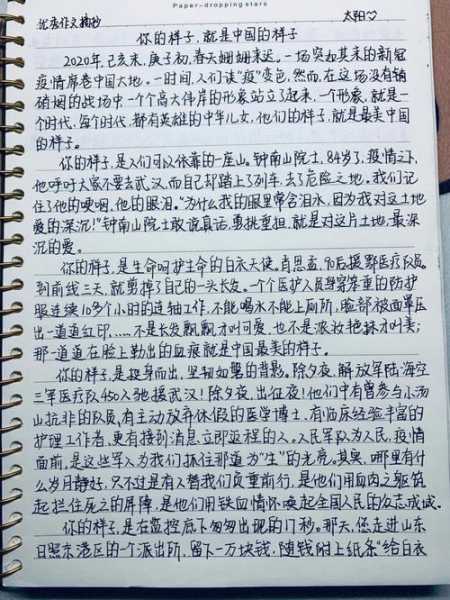 Paper-dropping stars
优秀作文摘抄 太阳
你的样子,就是中国的样子
2020年,己亥末,庚子初,春天姗姗来迟。一场突如其来的新冠
疫情席卷中国大地。一时间,人们谈"疫"变色,然而,在这场没有硝
硝烟的战场中一个个高大伟岸的形象站立了起来,一个形象,就是一
个时代,每个时代,都有英雄的中华儿女,他们的样子,就是最美中国
的样子。
你的样子,是人们可以依靠的一座山。钟南山院士,84岁了,疫情之下,
他呼吁大家不要去武汉,而自己却踏上了列车,去了危险之地。我们记
住了他的哽咽,他的眼泪。"为什么我的眼里常含泪水,因为我对这土地
爱的深沉!"钟南山院士敢说真话,勇挑重担,就是对这片土地,最深
沉的爱。
你的样子,是生命呵护生命的白衣天使。肖思孟,90后援鄂医疗队员,
到前线三天,就剪掉了自己的一头长发。一个个医护人员身穿笨重的防护
服连续10多个小时的连轴工作,不能喝水不能上厕所,脸部被面罩压
出一道道红印,……不是长发飘飘才叫可爱,也不是浓妆艳抹才叫美;
那一道道在脸上勒出的血痕就是中国最美的样子。
你的样子,是挺身而出,坚韧如磐的背影。除夕夜,解放军陆海空
三军医疗队450人驰援武汉!除夕夜,出征夜!他们中有曾参与小汤
山抗非的队员,有主动放弃休假的医学博士,有临床经验丰富的
护理工作者,更有接到消息立即返程的人。人民军队为人民,疫情
面前,是这些军人为我们抓住那道为"生"的光亮。其实,哪里有什
么岁月静好,只不过是有人替我们负重前行,是他们用血肉之躯筑
起拦住死亡的屏障,是他们用铁血情怀唤起全国人民的众志成城。
你的样子,是在监控底下匆匆出现的几秒。那天,您走进山东
日照东港区的一个派出所,留下一万块钱,随钱附上纸条"给白衣